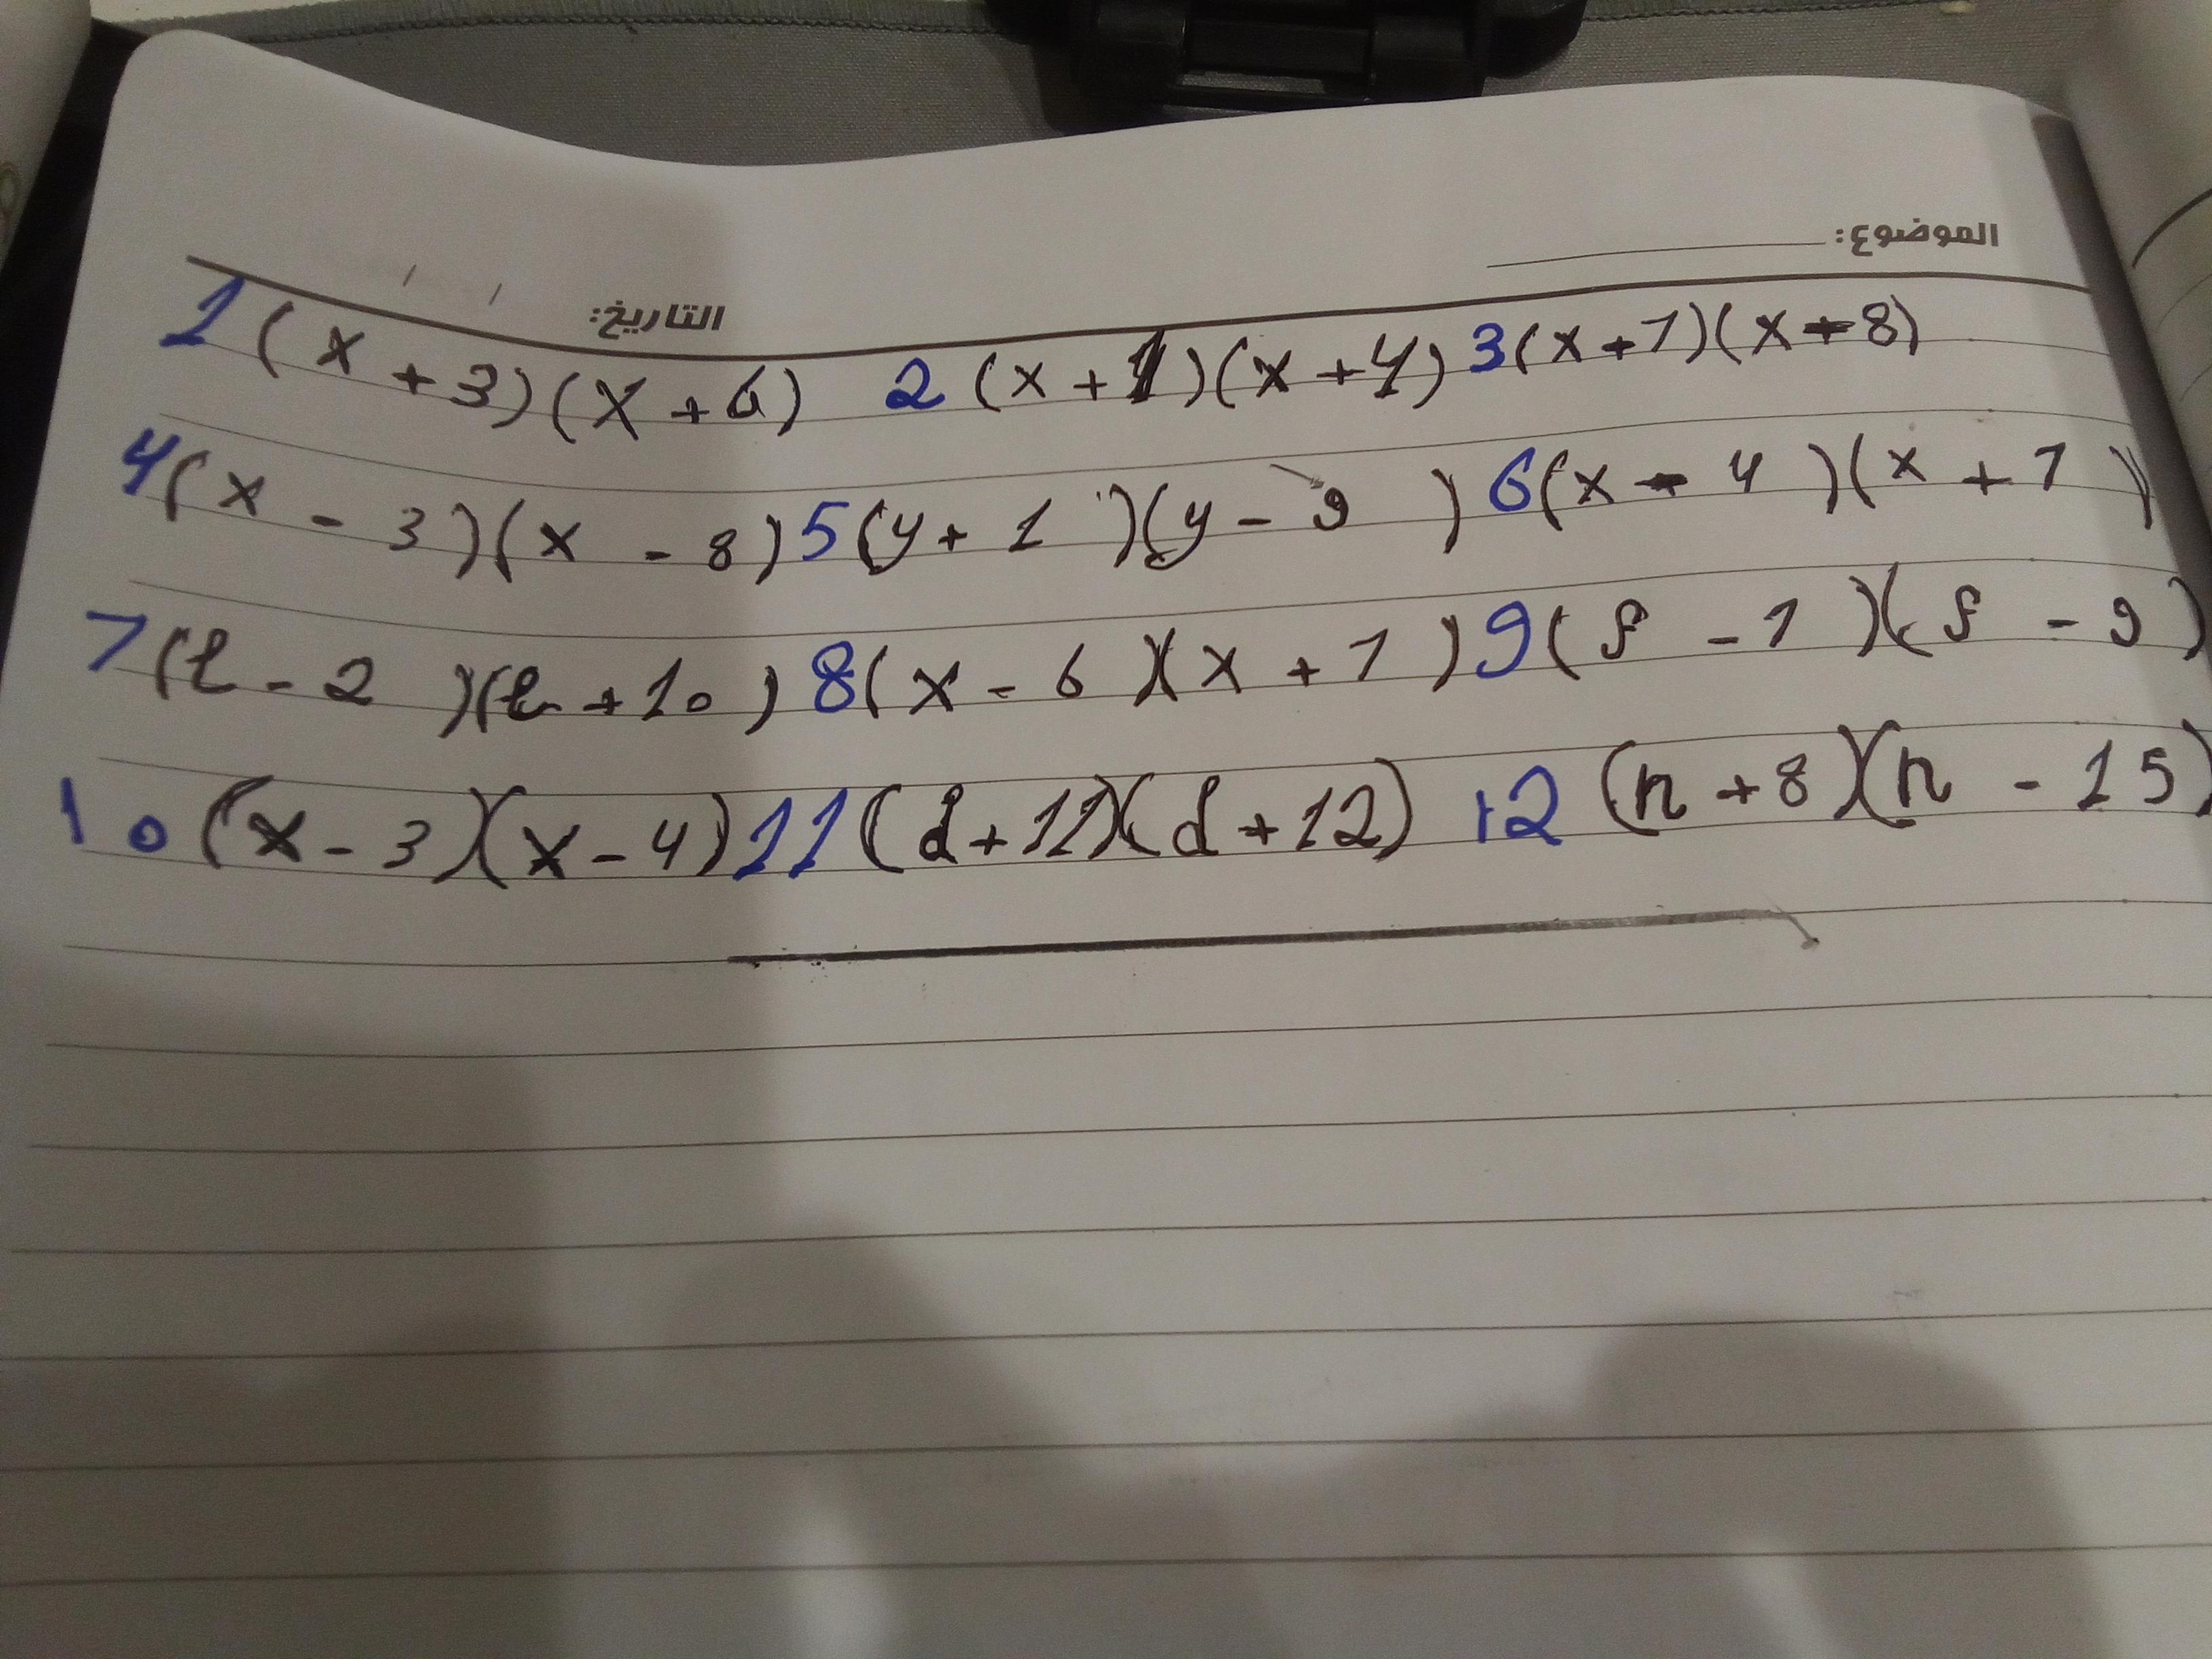 الموضوع:
التاريخ: / /
1 (x + 3)(x + 6) 2 (x + 1)(x + 4) 3 (x + 7)(x + 8)
4 (x - 3)(x - 8) 5 (y + 1)(y - 9) 6 (x - 4)(x + 7)
7 (t - 2)(t + 10) 8 (x - 6)(x + 7) 9 (f - 1)(f - 9)
10 (x - 3)(x - 4) 11 (d + 11)(d + 12) 12 (n + 8)(n - 15)